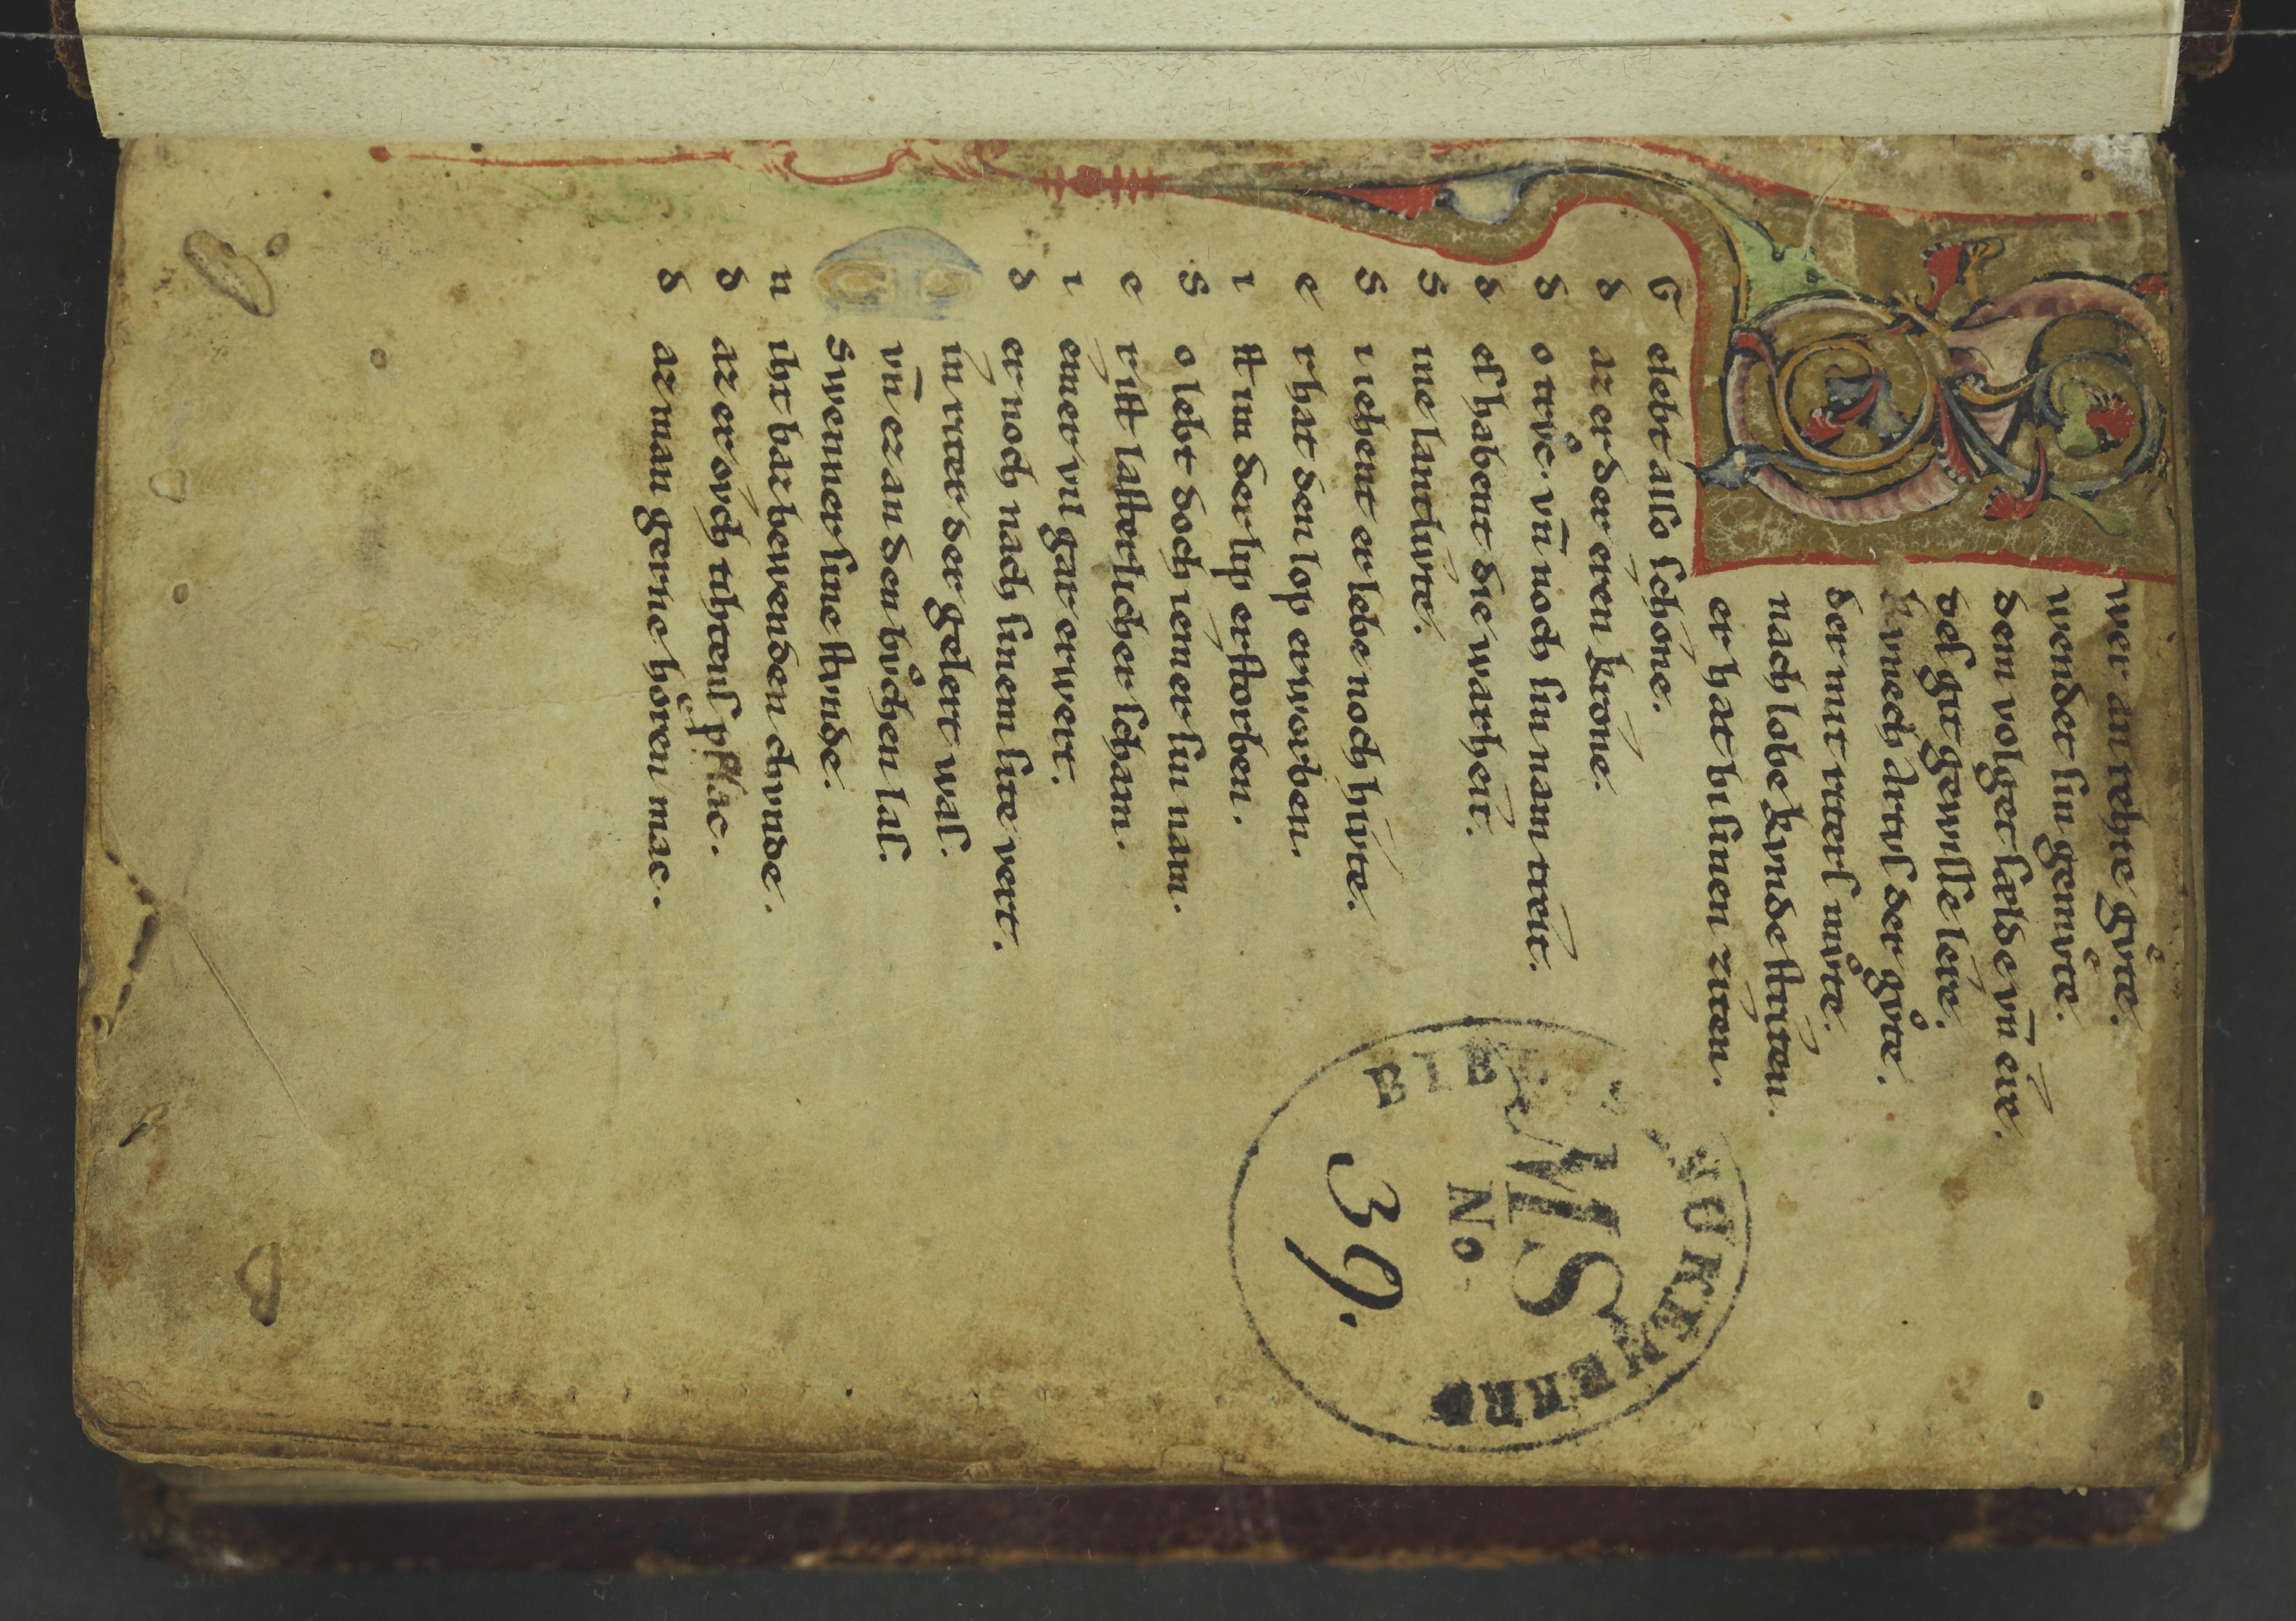 wer an rehte gv̊te.
wendet sin gemv̊te.
dem volget sælde vn̄ ere.
des git gewisse lere.
kvnech Artvs der gv̊te.
der mit riters mv̊te.
nach lobe kvnde striten.
er hat bi sinen ziten.
Gelebt also schone.
daz er der eren krone.
do trv̊c. vn̄ noch sin nam treit.
des habent die warheit.
Sine lantlivte.
Si iehent er lebe noch hivte.
er hat den lop erworben.
ist im der lip erstorben.
So lebt doch iemer sin nam.
er ist lasterlicher scham.
iemer vil gar erwert.
der noch nach sinem site vert.
ein riter der gelert was.
vn̄ ez an den bv̊chen las.
Swenner sine stvnde.
niht baz bewenden chvnde.
daz er ovch tihtens pflac.
daz man gerne hoͤren mac.
MS
No
39.